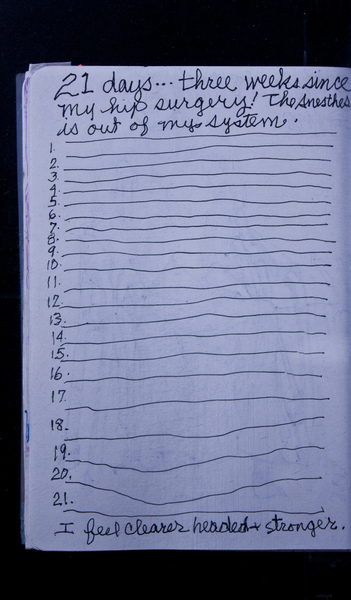 21 days... three weeks since
my hip surgery! The Anesthes
is out of my system.
1.
2.
3.
4.
5.
6.
7.
8.
9.
10.
11.
12.
13.
14.
15.
16.
17.
18.
19.
20.
21.
I feel clearer headed + stronger.